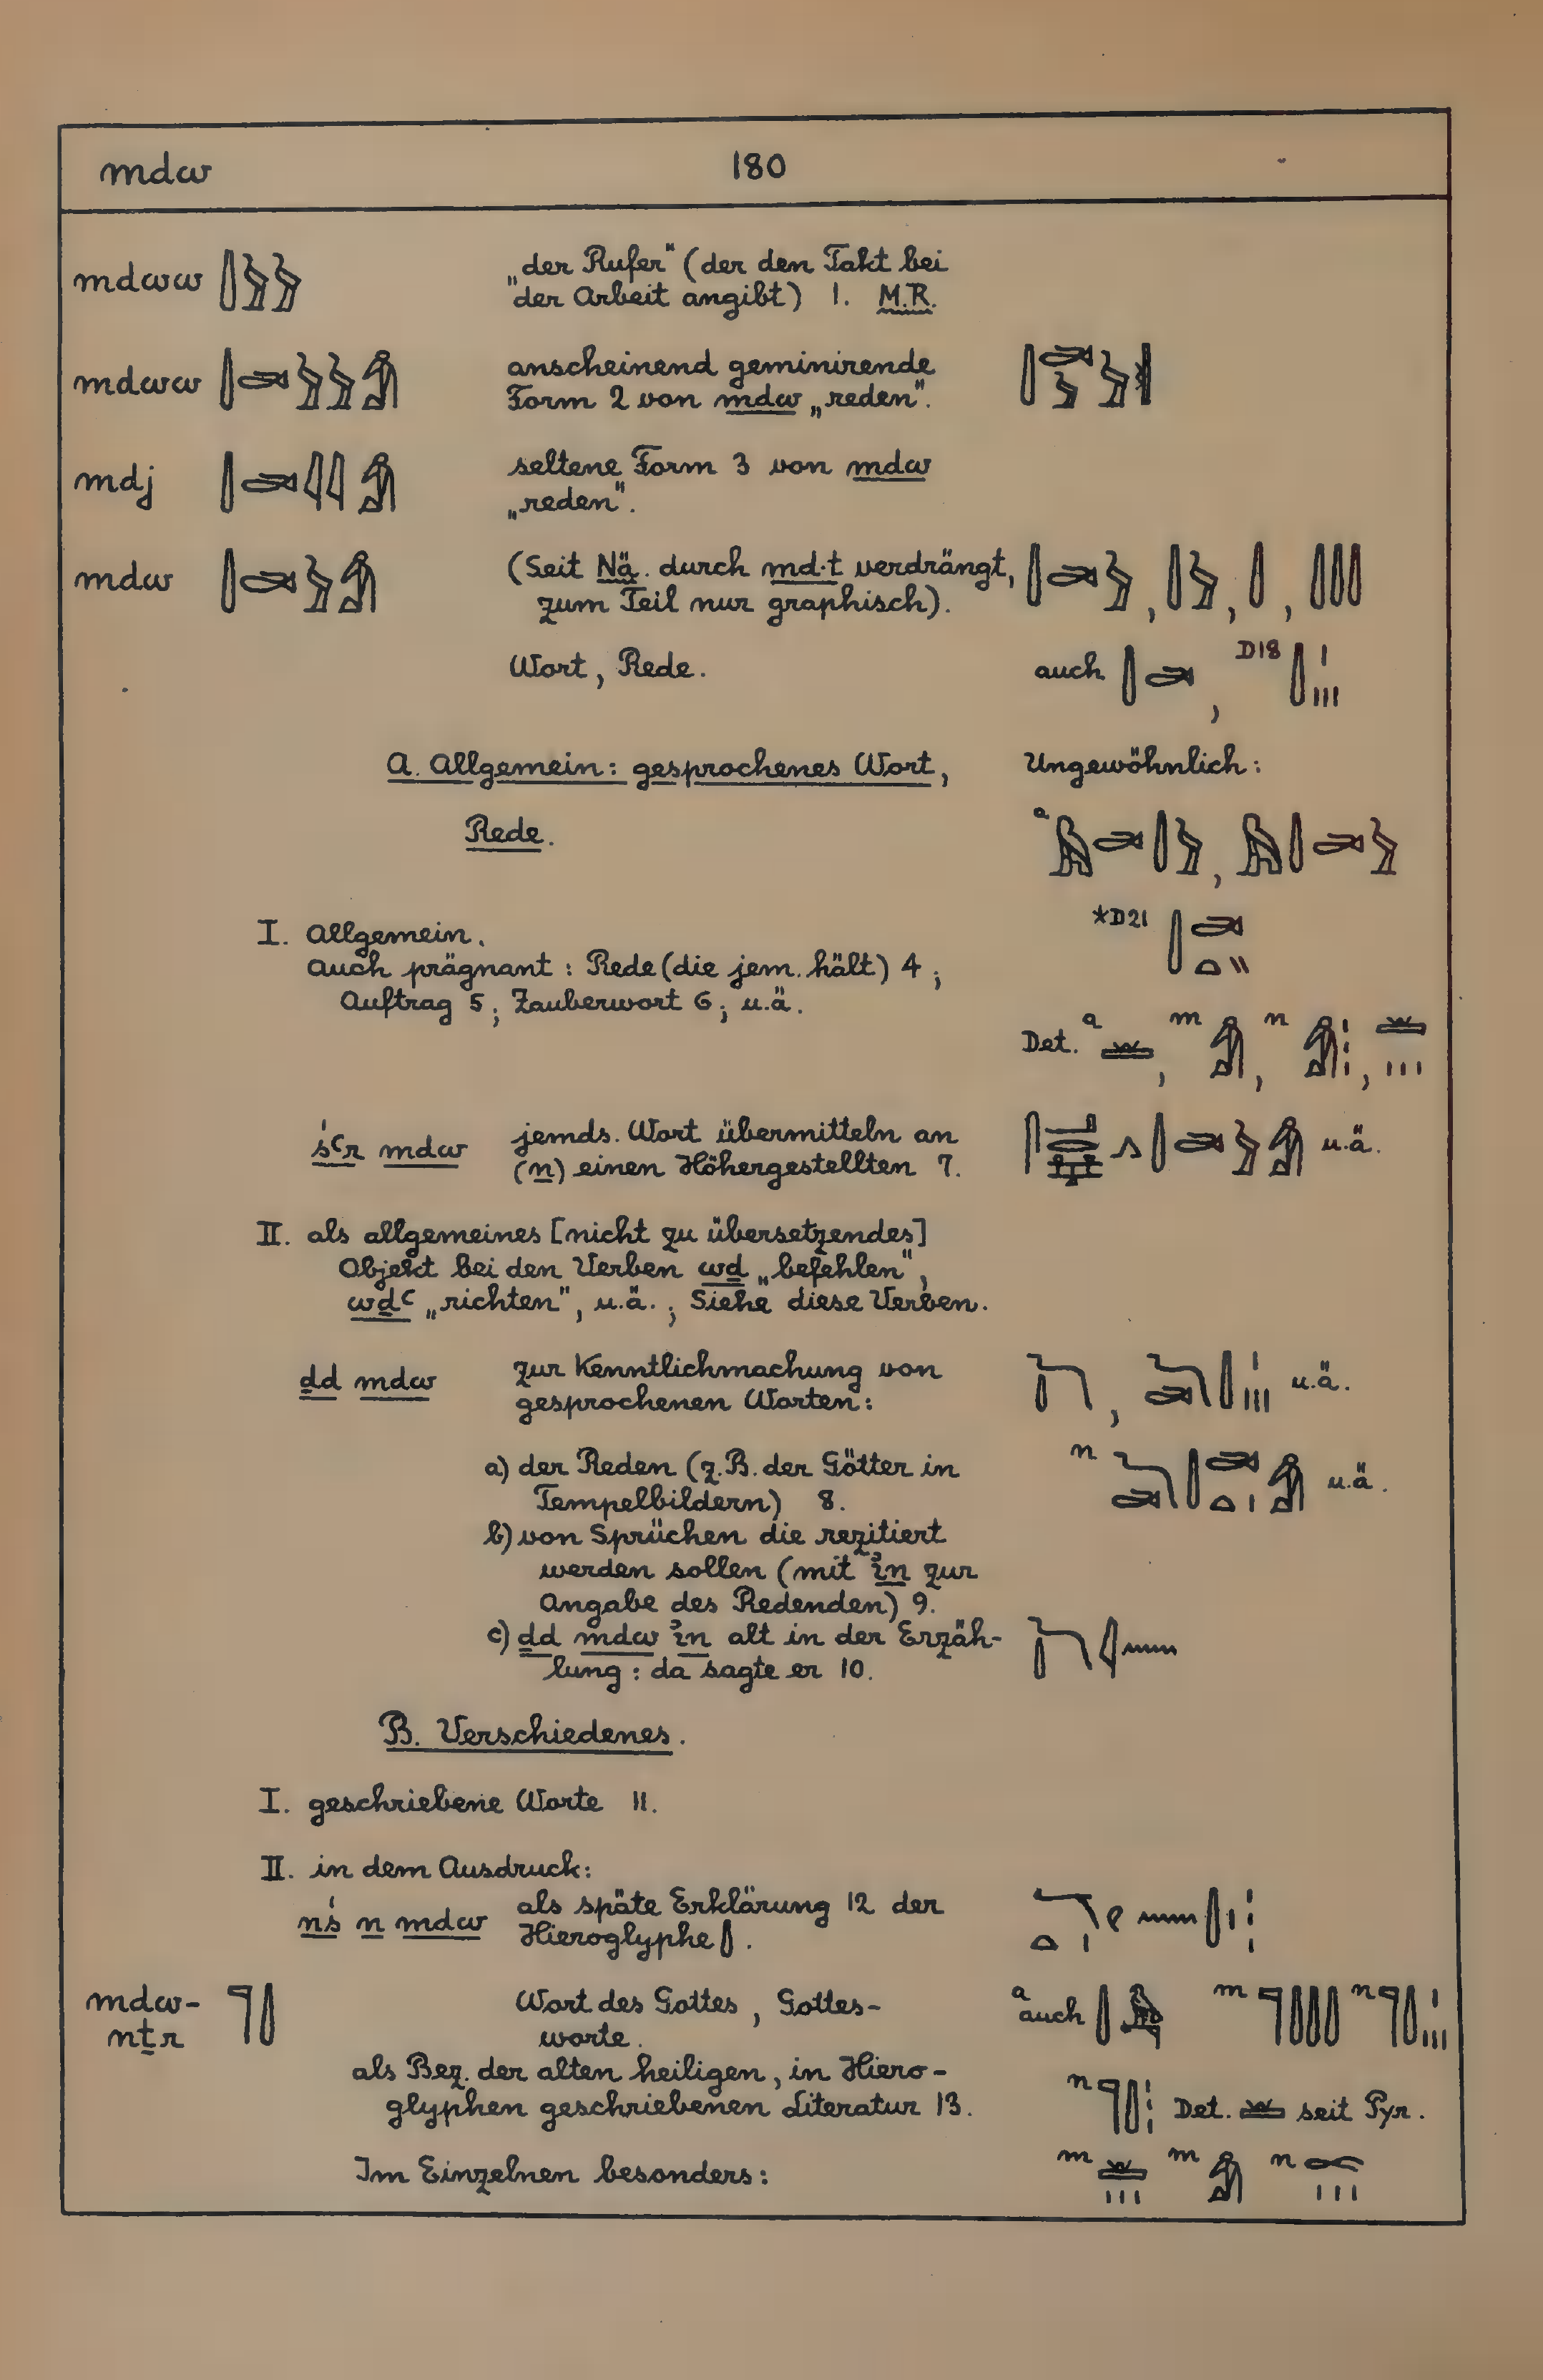 mdw 180
mdww „der Rufer" (der den Takt bei
der Arbeit angibt) 1. M.R.
mdww anscheinend geminirende
Form 2 von mdw „reden".
mdj seltene Form 3 von mdw
„reden".
mdw (Seit Nä. durch md·t verdrängt,
zum Teil nur graphisch).
Wort, Rede. auch , D18
A. Allgemein: gesprochenes Wort, Ungewöhnlich:
Rede. a
I. Allgemein. *D21
auch prägnant: Rede (die jem. hält) 4;
Auftrag 5; Zauberwort 6; u.ä.
Det. a , m , n ,
śꜥr mdw jemds. Wort übermitteln an u.ä.
(n) einen Höhergestellten 7.
II. als allgemeines [nicht zu übersetzendes]
Objekt bei den Verben wḏ „befehlen",
wḏꜥ „richten", u.ä.; Siehe diese Verben.
ḏd mdw zur Kenntlichmachung von
gesprochenen Worten: , u.ä.
a) der Reden (z.B. der Götter in n u.ä.
Tempelbildern) 8.
b) von Sprüchen die rezitiert
werden sollen (mit ỉn zur
Angabe des Redenden) 9.
c) ḏd mdw ỉn alt in der Erzäh-
lung: da sagte er 10.
B. Verschiedenes.
I. geschriebene Worte 11.
II. in dem Ausdruck:
nś n mdw als späte Erklärung 12 der
Hieroglyphe .
mdw- Wort des Gottes, Gottes- a auch m n
nṯr worte.
als Bez. der alten heiligen, in Hiero-
glyphen geschriebenen Literatur 13. n Det. seit Pyr.
Im Einzelnen besonders: m m n